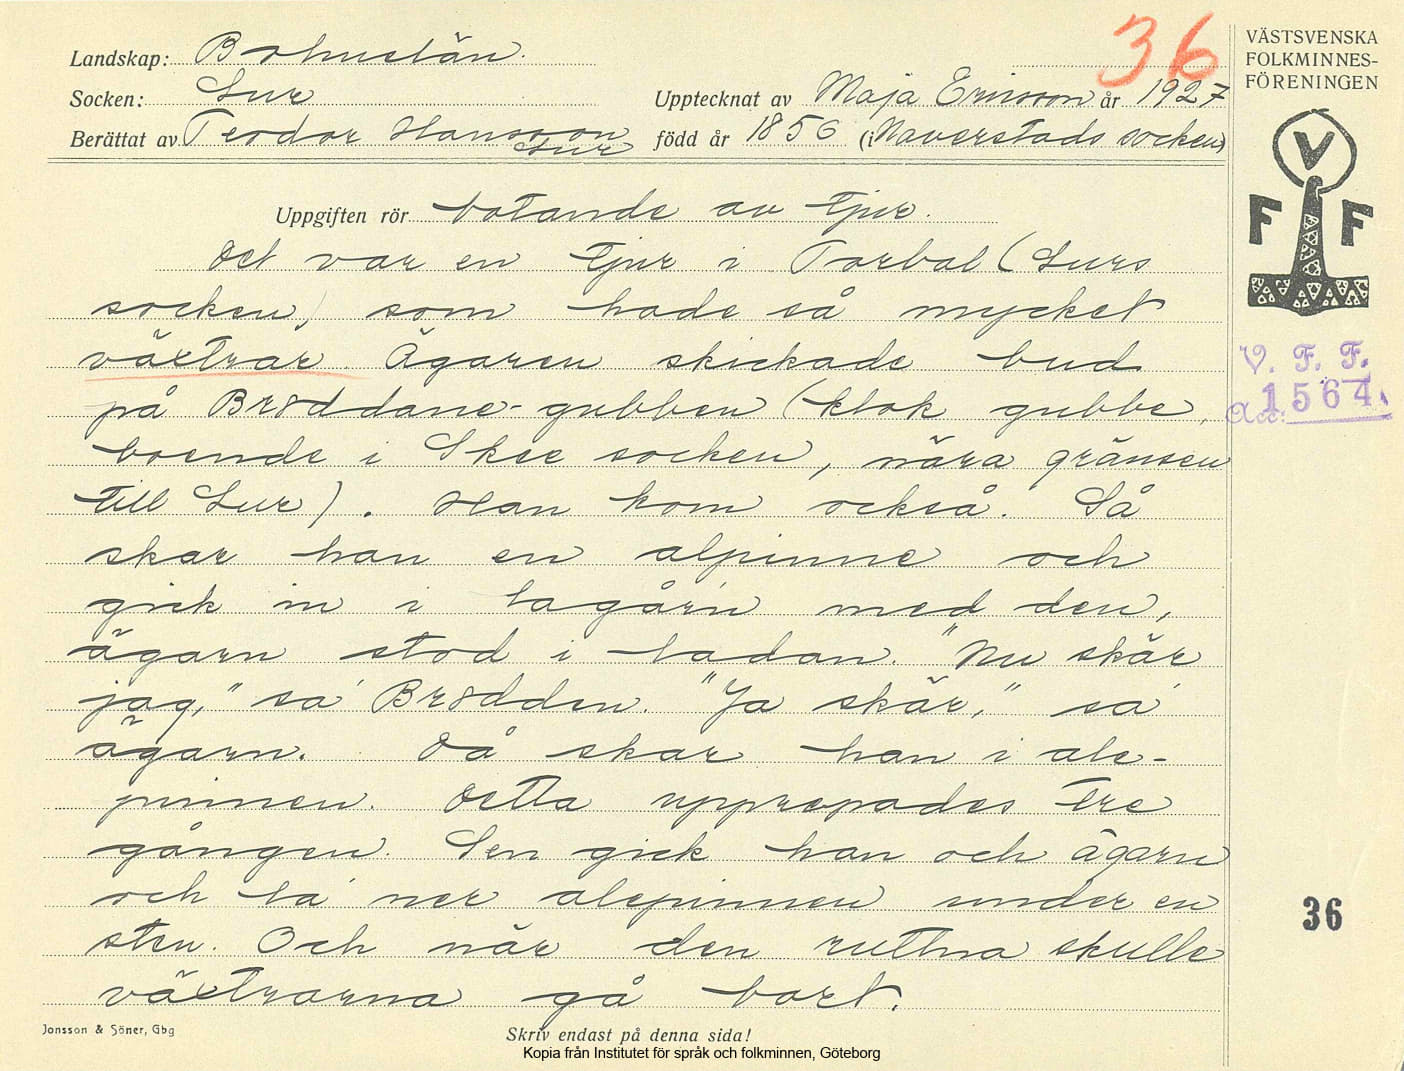 36
Landskap: Bohuslän.
Socken: Lur
Upptecknat av Maja Ericsson år 1927
Berättat av Teodor Hansson
Lur
född år 1856 (i Naverstads socken)
VÄSTSVENSKA
FOLKMINNES-
FÖRENINGEN
V
F F
V. F. F.
Acc: 1564.
Uppgiften rör botande av tjur.
Det var en tjur i Torbal (Lurs
socken) som hade så mycket
växtrar. Ägaren skickade bud
på Bröddane-gubben (klok gubbe,
boende i Skee socken, nära gränsen
till Lur). Han kom också. Så
skar han en alpinne och
gick in i lagårn med den,
ägarn stod i ladan. "Nu skär
jag," sa' Brödden. "Ja skär," sa'
ägarn. Då skar han i ale-
pinnen. Detta upprepades tre
gången. Sen gick han och ägarn
och la' ner alepinnen under en
sten. Och när den ruttna skulle
växtrarna gå bort.
36
Jonsson & Söner, Gbg
Skriv endast på denna sida!
Kopia från Institutet för språk och folkminnen, Göteborg